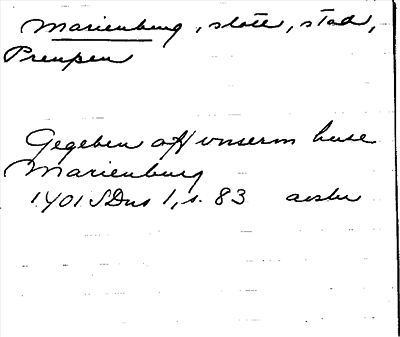 Marienburg, slott, stad,
Preussen
Gegeben off vnserm huse
Marienburg
1401 SDns 1, s. 83